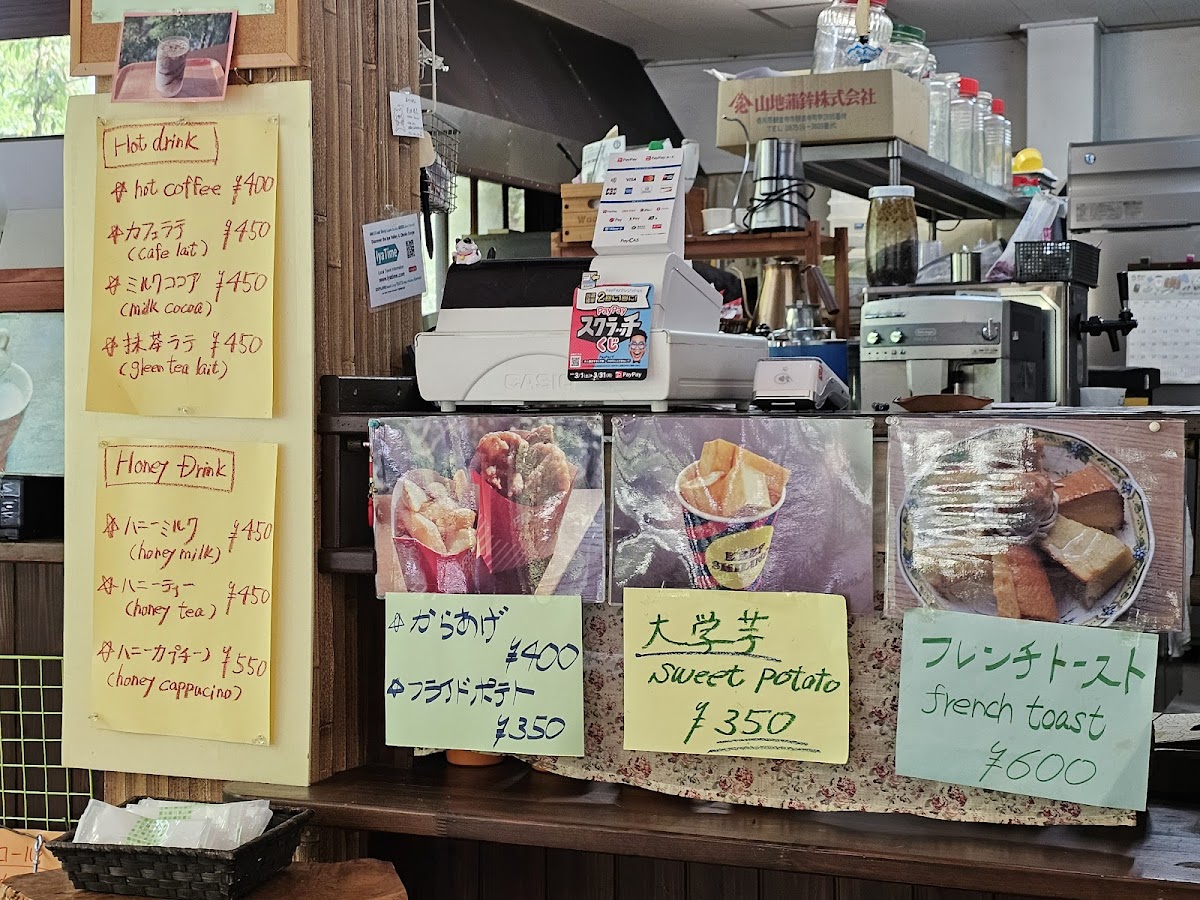 Hot drink
hot coffee ¥400
カフェラテ ¥450
(Cafe lait)
ミルクココア ¥450
(milk cocoa)
抹茶ラテ ¥450
(gleen tea lait)
Honey Drink
ハニーミルク ¥450
(honey milk)
ハニーティー ¥450
(honey tea)
ハニーカプチーノ ¥550
(honey cappucino)
iyaTime
PayPay
VISA
PayCAS
PayPay
スクラッチ
くじ
PayPay
CASIO
山地蒲鉾株式会社
からあげ
¥400
フライドポテト
¥350
大学芋
sweet potato
¥350
フレンチトースト
french toast
¥600